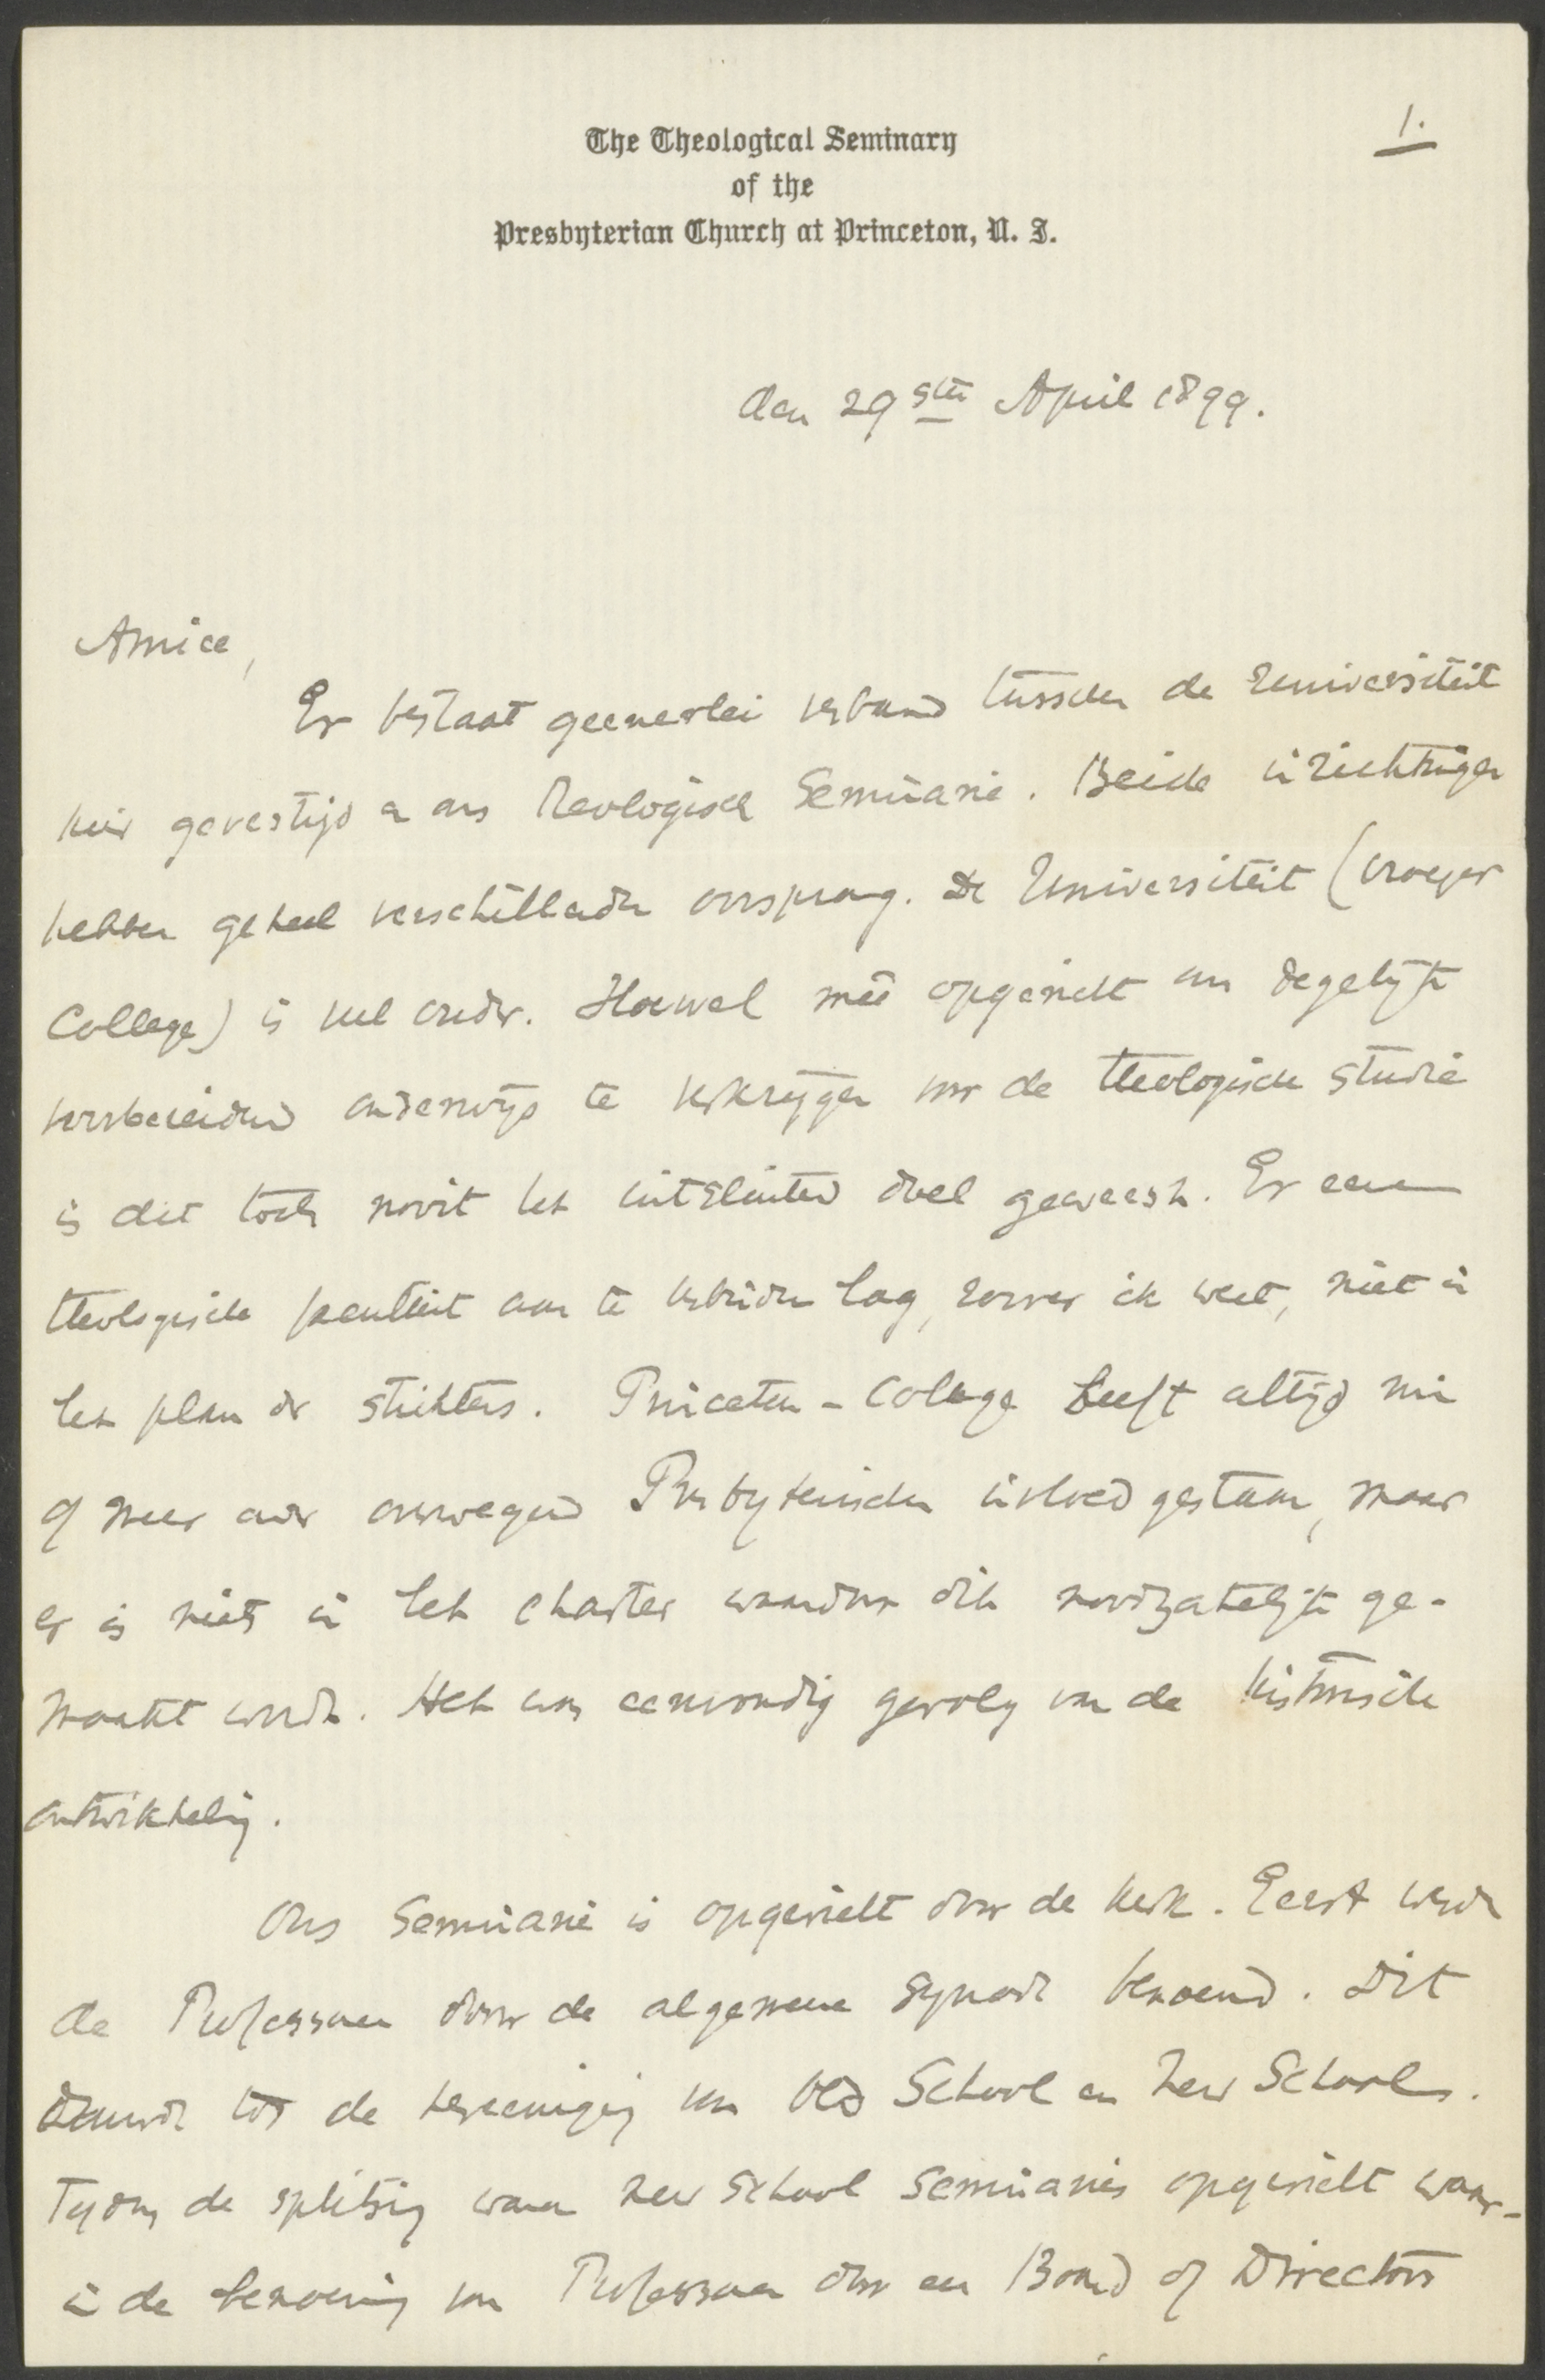 1.
The Theological Seminary
of the
Presbyterian Church at Princeton, N. J.
den 29sten April 1899.
Amice,
Er bestaat geenerlei verband tusschen de Universiteit
hier gevestigd en ons Theologisch Seminarie. Beide inrichtingen
hebben geheel verschillenden oorsprong. De Universiteit (vroeger
College) is veel ouder. Hoewel mee opgericht om degelijk
voorbereidend onderwijs te verkrijgen voor de theologische studie
is dit toch nooit het uitsluitend doel geweest. Er eene
theologische faculteit aan te verbinden lag, zoover ik weet, niet in
het plan der stichters. Princeton-College heeft altijd min
of meer onder overwegend Presbyterischen invloed gestaan, maar
er is niets in het charter waardoor dit noodzakelijk ge-
maakt wordt. Het was eenvoudig gevolg van de historische
ontwikkeling.
Ons Seminarie is opgericht door de Kerk. Eerst werden
de Professoren door de algemeene Synode benoemd. Dit
duurde tot de hereeniging van Old School en New School.
Tijdens de splitsing waren New School Seminaries opgericht waar-
in de benoeming van Professoren door een Board of Directors